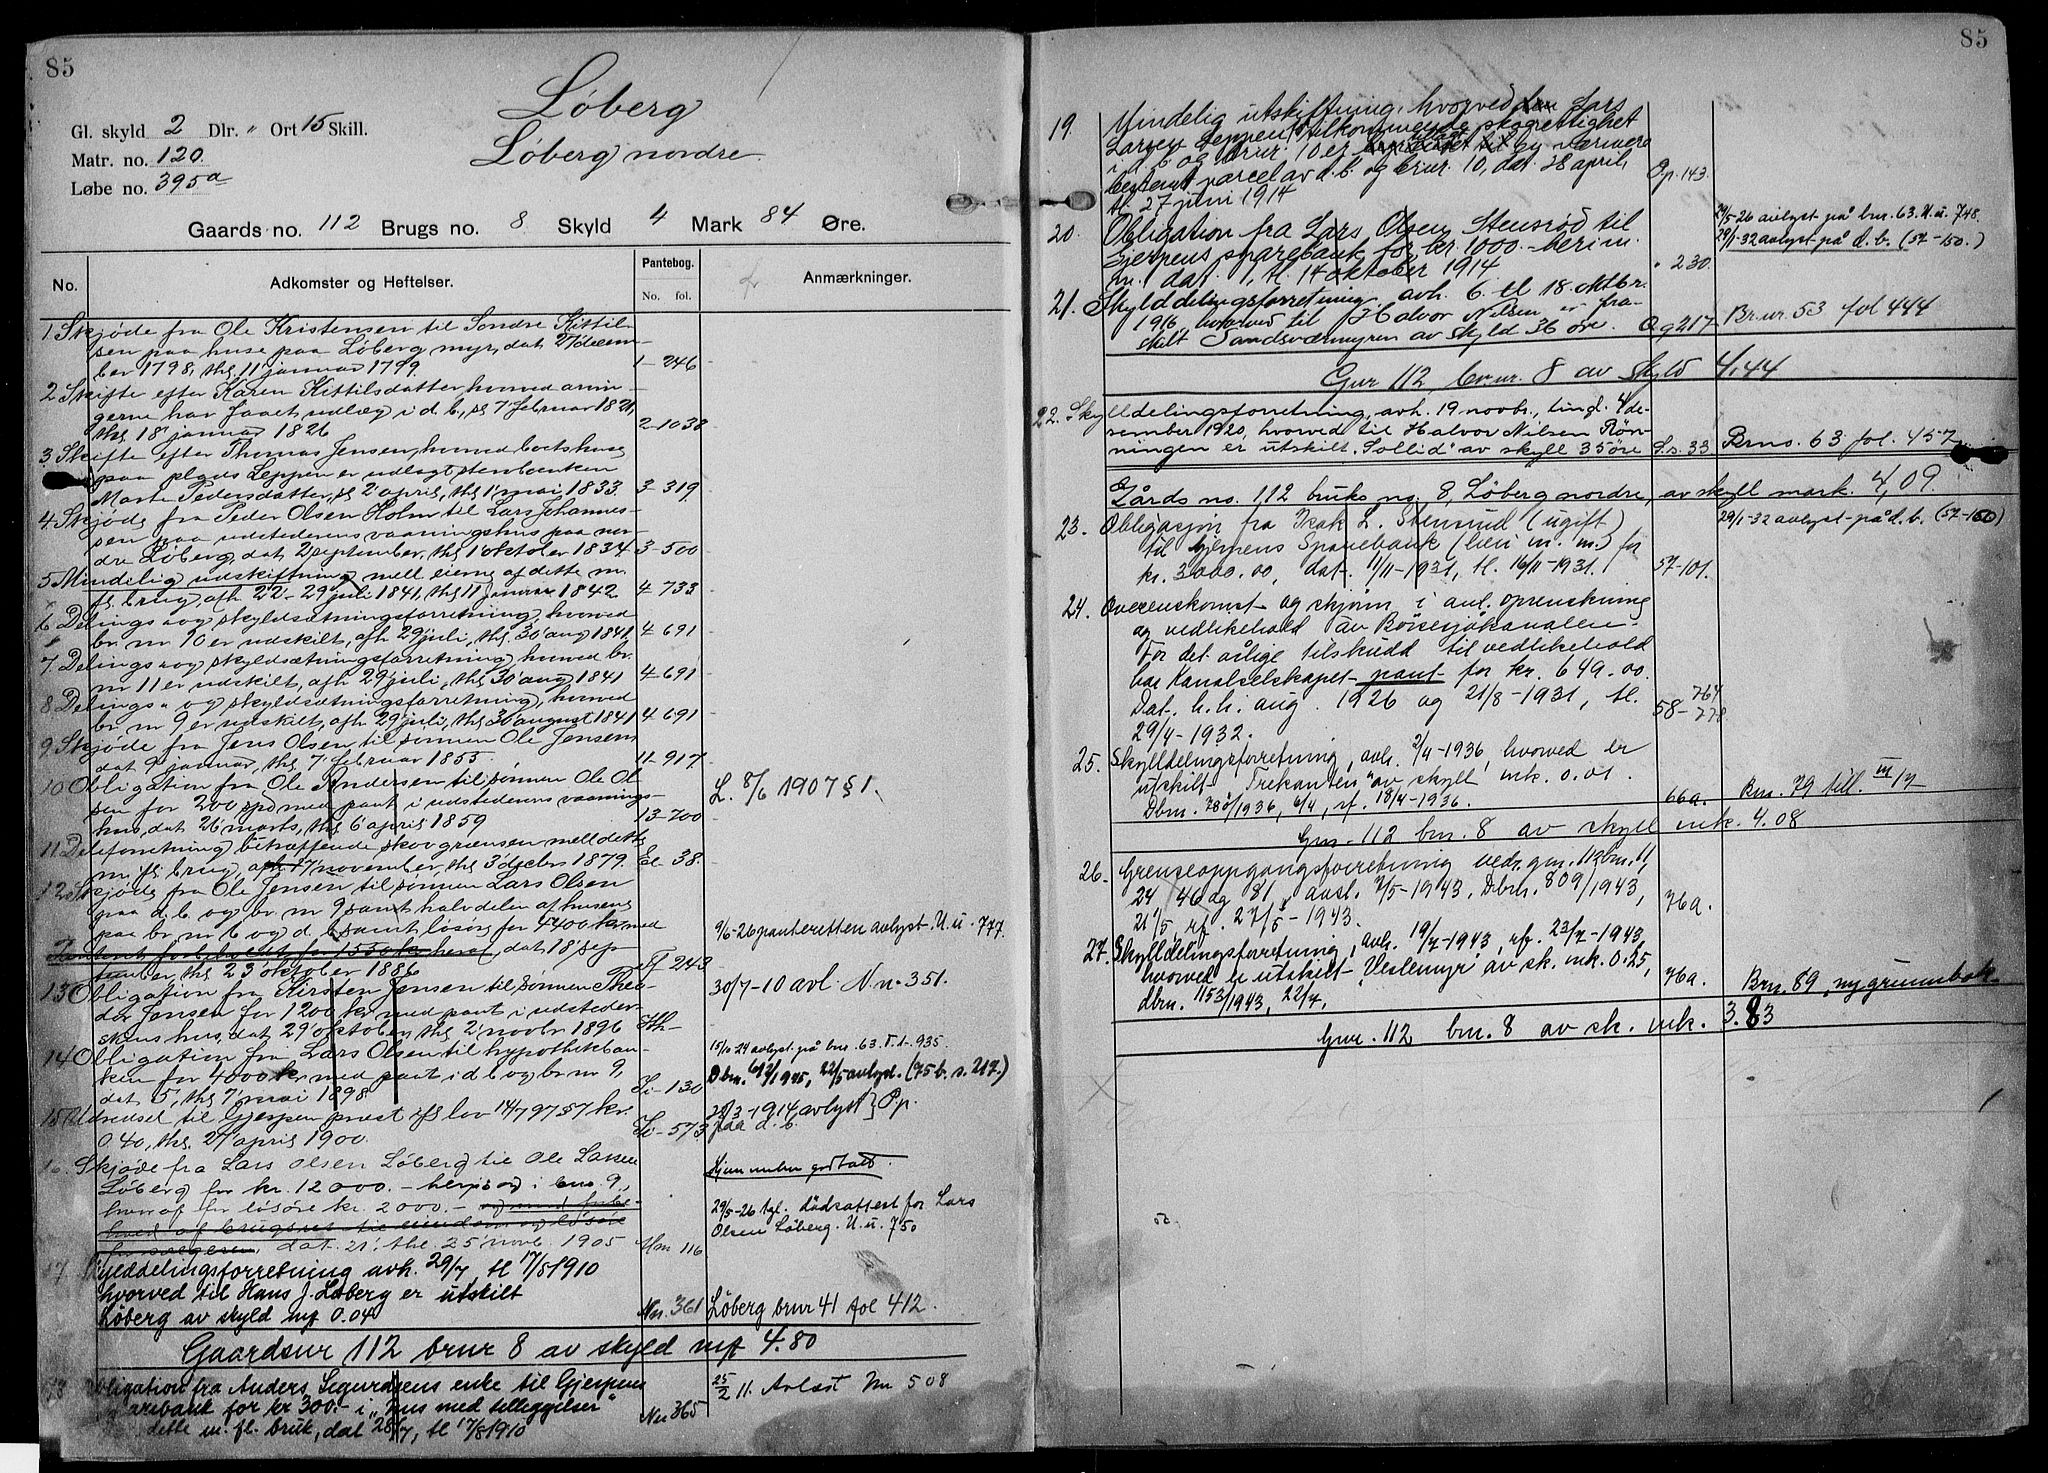 85
Løberg
Løberg nordre.
Gl. skyld 2 Dlr. " Ort 15 Skill.
Matr. no. 120.
Løbe no. 395a
Gaards no. 112 Brugs no. 8 Skyld 4 Mark 84 Øre.
No. Adkomster og Heftelser. Pantebog. No. fol. Anmærkninger.
1 Skjøde fra Ole Kristensen til Sondre Kittil-
sen paa huse paa Løberg myr, dat 27 decem-
ber 1798, thl 11 januar 1799. 1-246
2 Skifte efter Karen Kittilsdatter hvorved arvin-
gerne har faaet udlæg i d. b., sl 7 februar 1821,
thl 18 januar 1826 2-1038
3. Skifte efter Thomas Jensen, hvorved bortehuse
paa plads Leppen er udlagt stervbanken
Marte Pedersdatter, sl 2 april, thl 1 mai 1833. 3-319
4. Skjøde fra Peder Olsen Holm til Lars Johannes-
sen paa udstederens vaaningshus paa nor-
dre Løberg, dat 2 september, thl 1 oktober 1834. 3-500
5 Mindelig udskiftning mell eierne af dette m.
fl. brug, afh 22-29 juli 1841, thl 11 januar 1842 4-733
6 Delings- og skyldsætningsforretning, hvorved
br nr 10 er udskilt, afh 29 juli, thl 30 aug 1841. 4-691
7. Delings- og skyldsætningsforretning, hvorved br.
nr 11 er udskilt, afh 29 juli, thl 30 aug 1841 4-691
8 Delings- og skyldsætningsforretning, hvorved
br nr 9 er udskilt, afh 29 juli, thl 30 august 1841 4-691
9. Skjøde fra Jens Olsen til sønnen Ole Jensen
dat 9 januar, thl 7 februar 1855. 11-917
10 Obligation fra Ole Andersen til sønnen Ole Ol-
sen for 200 spd med pant i udstederens vaanings-
hus, dat 26 marts, thl 6 april 1859 13-700 L. 8/6 1907 § 1.
11 Deleforretning betræffende skovgrænsen mell dette
m. fl. brug, afh 17 november, thl 3 decbr 1879. Ee 38.
12 Skjøde fra Ole Jensen til sønnen Lars Olsen
paa d. b og br nr 9 samt halvdelen af husene
paa br nr 6 og d. b. samt løsøre for 4400 kr med
panteret forbeholdt for 1550 kr heraf, dat 18 sep-
tember, thl 23 oktober 1886 Ff 243 9/6-26 panteretten avlyst. U. u. 777.
13 Obligation fra Kirsten Jensen til sønnen Theo-
dor Jensen for 1200 kr med pant i udsteder-
skens hus, dat 29 oktober, thl 2 novbr 1896 Hh- 30/7-10 avl. N. n. 351.
14 Obligation fra Lars Olsen til hypothekban-
ken for 4000 kr med pant i d. b og br nr 9,
dat 5, thl 7 mai 1898 Ii-130 15/10 24 avlyst på bnr. 63. T. t. 935.
Dbnr. 612/1945, 22/5 avlyst. (75 b. s. 217.)
15 Utdrensel til Gjerpen præst ifl lov 14/7 97 57 kr.
0.40, thl. 27 april 1900. Ii-573 28/3-1914 avlyst } P.p.
paa d. b.
16. Skjøde fra Lars Olsen Løberg til Ole Larsen
Løberg for kr. 12 000.- herpaa og i bnr. 9,
hvoraf for løsøre kr. 2000.- og med forbe-
hold af brugsret til eiendom og løsøre
for sælgeren, dat. 21, thl. 25 novb. 1905 Mm 116
29/5-26 tgl. dødsattest for Lars
Olsen Løberg. U. u. 750
17 Skylddelingsforretning avh. 29/7 tl 17/8 1910
hvorved til Hans J. Løberg er utskilt
Løberg av skyld mk 0.04 Nn. 361 Løberg brnr 41 fol 412.
Gaardsnr 112 brnr 8 av skyld mk 4.80
18 Obligation fra Anders Sigurdsens enke til Gjerpens
sparebank for kr 300.- i "hus med tilleggelser"
dette m. fl. bruk, dat 28/7, tl 17/8 1910 Nn 365 25/2 11. Avlæst Nn 508
85
19. Mindelig utskiftning, hvorved den Lars
Larsen Leppen tilkommende skogrettighet
i d. b. og brnr. 10 er henlagt til en nærmere
bestemt parcel av d. b. og brnr. 10, dat 28 april,
tl. 27 juni 1914 Pp. 143.
20. Obligation fra Lars Olsen Stensrød til
Gjerpens sparebank for kr. 1000.- herim.
m., dat. 1, tl. 14 oktober 1914 " 230.
29/5-26 avlyst på bnr. 63. U. u. 748.
29/1-32 avlyst på d. b. (57-150.)
21. Skylddelingsforretning avh. 6. tl 18. oktbr.
1916, hvorved til Halvor Nilsen er fra-
skilt Sandsværmyren av skyld 36 øre. Qq 217 Brnr. 53 fol 444
Gnr 112 brnr. 8 av skyld 4,44
22. Skylldelingsforretning, avh. 19 novbr., tingl. 4 de-
sember 1920, hvorved til Halvor Nilsen Røn-
ningen er utskilt "Sollid" av skyll 35 øre S.s. 33 Brno. 63 fol. 457
Gårds no. 112 bruks no. 8, Løberg nordre, av skyll mark. 4,09.
23. Obligasjon fra Isak L. Stensrud (ugift)
til Gjerpens Sparebank (heri m. m.) for
kr. 3000.00, dat. 11/11-1931, tl. 16/11-1931. 57-101. 29/1-32 avlyst på d. b. (57-150)
24. Overenskomst og skjønn i anl. oprenskning
og vedlikehold av Børsesjøkanalen.
For det årlige tilskudd til vedlikehold
har Kanalselskapet pant for kr. 649.00.
Dat. h. h. aug. 1926 og 21/8-1931, tl.
29/4-1932. 58-764 778
25. Skylldelingsforretning, avh. 2/4-1936, hvorved er
utskilt "Trekanten" av skyll mk. 0.01.
Dbnr. 780/1936, 6/4, rf. 18/4-1936. 66a. Bnr. 79 till. III 17
Gnr. 112 bnr. 8 av skyll mk. 4.08
26. Grenseoppgangsforretning vedr. gnr. 112 bnr. 11,
24, 46 og 81, avsl. 7/5-1943, Dbnr. 809/1943,
21/5, rf. 27/5-1943. 76a.
27. Skylldelingsforretning, avh. 19/7-1943, rf. 23/7-1943
hvorved er utskilt "Veslemyr" av sk. mk. 0.25,
dbnr. 1153/1943, 22/7, 76a. Bnr. 89, ny grunnbok
Gnr. 112 bnr. 8 av sk. mk. 3.83